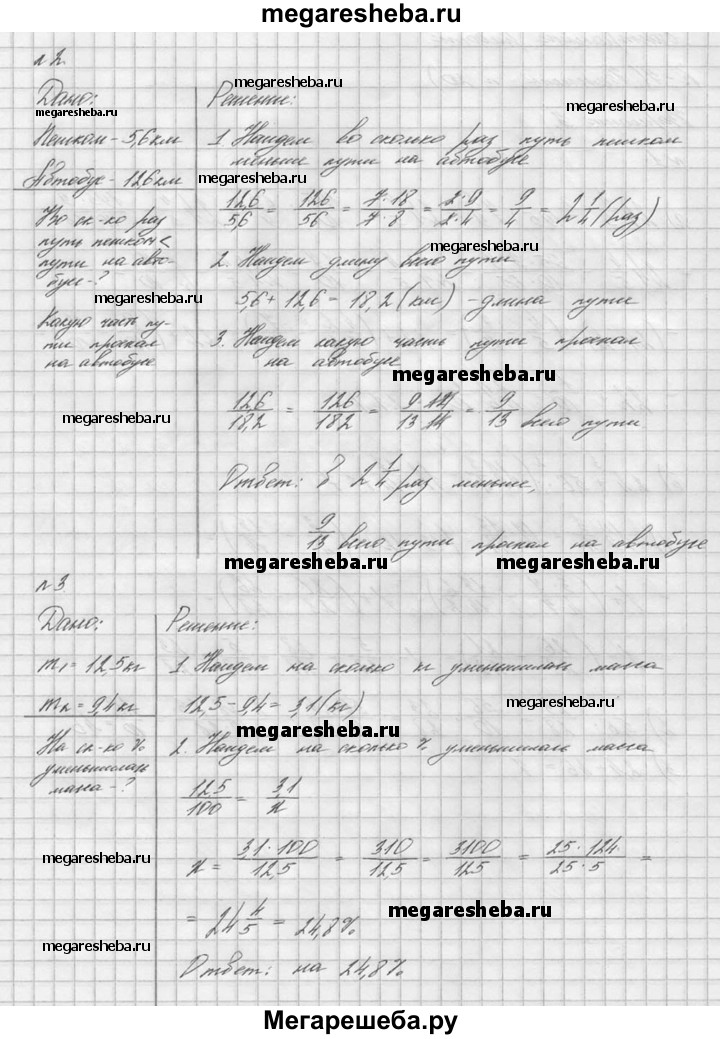 megaresheba.ru
№2.
Дано:
Пешком - 5,6 км
Автобус - 12,6 км
Во ск-ко раз
путь пешком <
пути на авто-
бусе - ?
Какую часть пу-
ти проехал
на автобусе
Решение:
1. Найдем во сколько раз путь пешком
меньше пути на автобусе
12,6/5,6 = 126/56 = 7·18/7·8 = 2·9/2·4 = 9/4 = 2 1/4 (раз)
2. Найдем длину всего пути
5,6 + 12,6 = 18,2 (км) - длина пути
3. Найдем какую часть пути проехал
на автобусе
12,6/18,2 = 126/182 = 9·14/13·14 = 9/13 всего пути
Ответ: в 2 1/4 раз меньше,
9/13 всего пути проехал на автобусе
№3
Дано:
m₁ = 12,5 кг
m₂ = 9,4 кг
На ск-ко %
уменьшилась
масса - ?
Решение:
1. Найдем на сколько кг уменьшилась масса
12,5 - 9,4 = 3,1 (кг)
2. Найдем на сколько % уменьшилась масса
12,5/100 = 3,1/x
x = 3,1·100/12,5 = 310/12,5 = 3100/125 = 25·124/25·5 =
= 24 4/5 = 24,8%
Ответ: на 24,8%
megaresheba.ru
megaresheba.ru
megaresheba.ru
megaresheba.ru
megaresheba.ru
megaresheba.ru
megaresheba.ru
megaresheba.ru
megaresheba.ru
megaresheba.ru
megaresheba.ru
megaresheba.ru
megaresheba.ru
Мегарешеба.ру